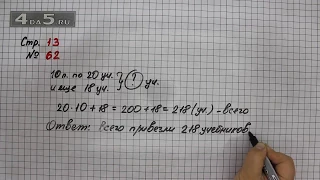 4DA5.RU
Стр. 13
№ 62
10 п. по 20 уч. } ? уч.
и еще 18 уч.
20·10+18=200+18=218(уч.)-всего
Ответ: всего привезли 218 учебников